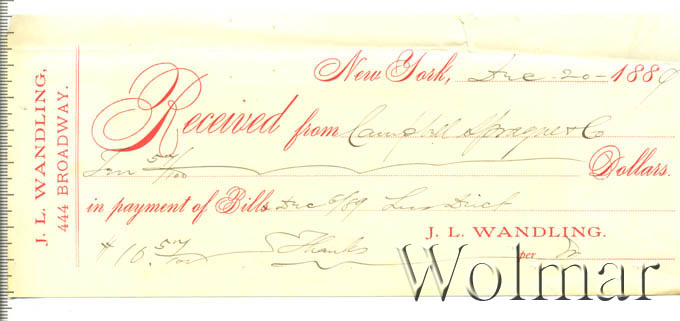 J. L. WANDLING,
444 BROADWAY.
New York, Dec 20 - 1889
Received from Campbell Sprague & Co
Ten 54/100 Dollars.
in payment of Bills Dec 6/89 Less Disct
$10.54/100 Thanks
J. L. WANDLING.
per
Wolmar